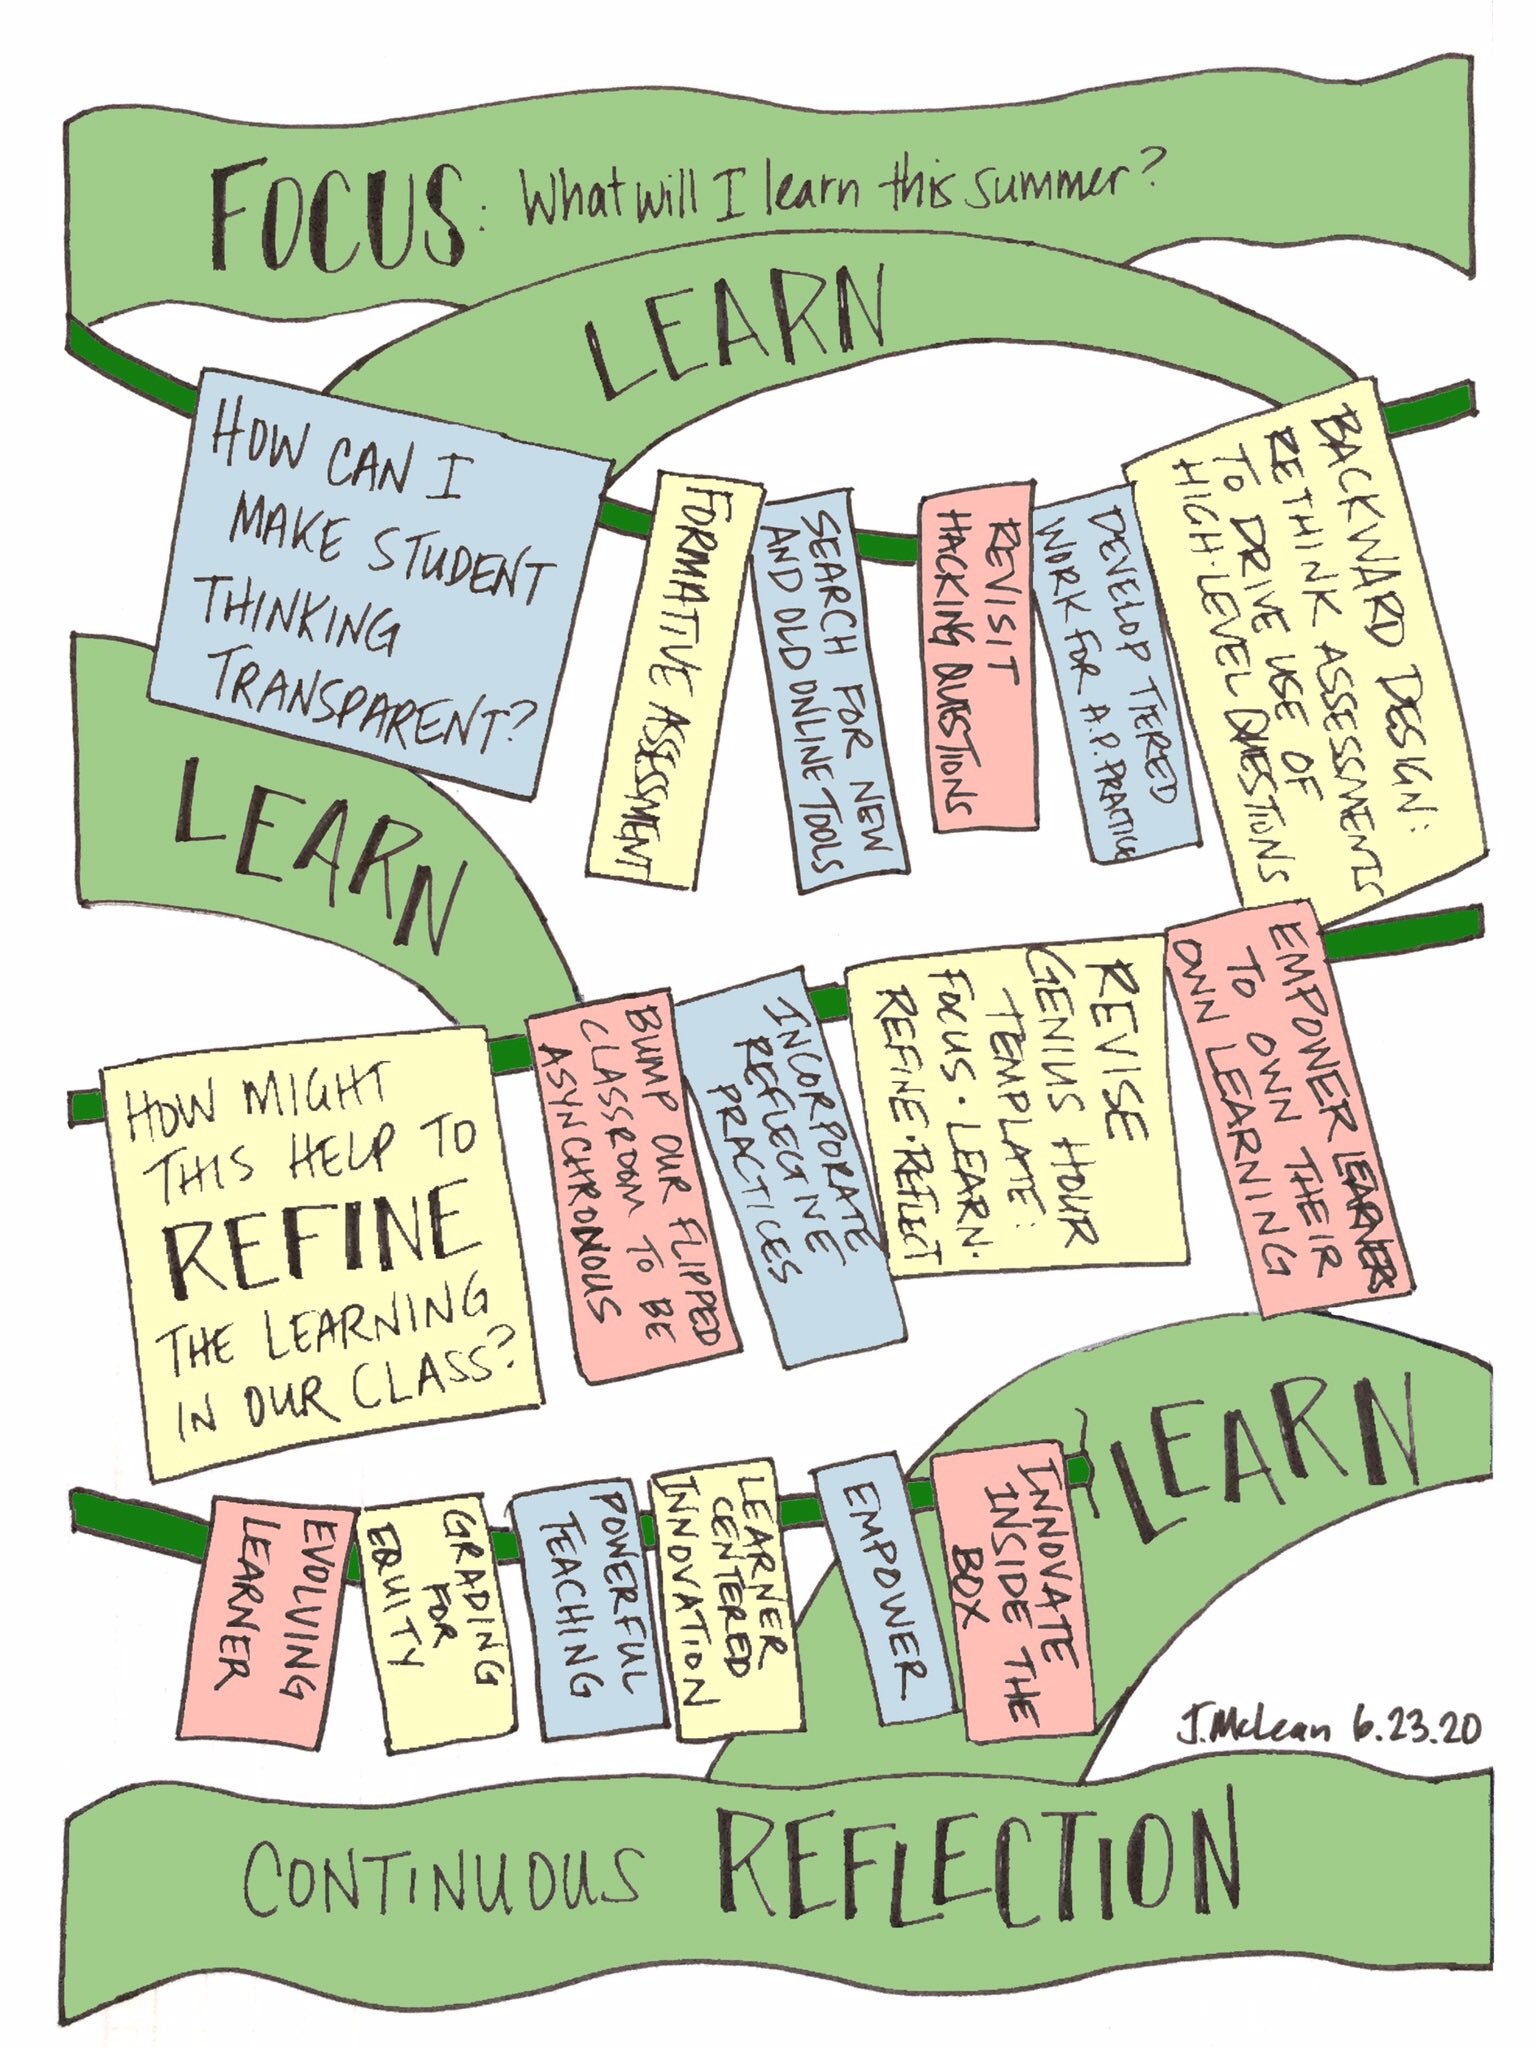 FOCUS: What will I learn this summer?
LEARN
HOW CAN I
MAKE STUDENT
THINKING
TRANSPARENT?
FORMATIVE ASSESSMENT
SEARCH FOR NEW
AND OLD ONLINE TOOLS
REVISIT
HACKING QUESTIONS
DEVELOP TIERED
WORK FOR A.P. PRACTICE
BACKWARD DESIGN:
RETHINK ASSESSMENTS
TO DRIVE USE OF
HIGH-LEVEL QUESTIONS
LEARN
HOW MIGHT
THIS HELP TO
REFINE
THE LEARNING
IN OUR CLASS?
BUMP OUR FLIPPED
CLASSROOM TO BE
ASYNCHRONOUS
INCORPORATE
REFLECTIVE
PRACTICES
REVISE
GENIUS HOUR
TEMPLATE:
FOCUS·LEARN·
REFINE·REFLECT
EMPOWER LEARNERS
TO OWN THEIR
OWN LEARNING
LEARN
EVOLVING
LEARNER
GRADING
FOR
EQUITY
POWERFUL
TEACHING
LEARNER
CENTERED
INNOVATION
EMPOWER
INNOVATE
INSIDE THE
BOX
J. McLean 6.23.20
CONTINUOUS REFLECTION